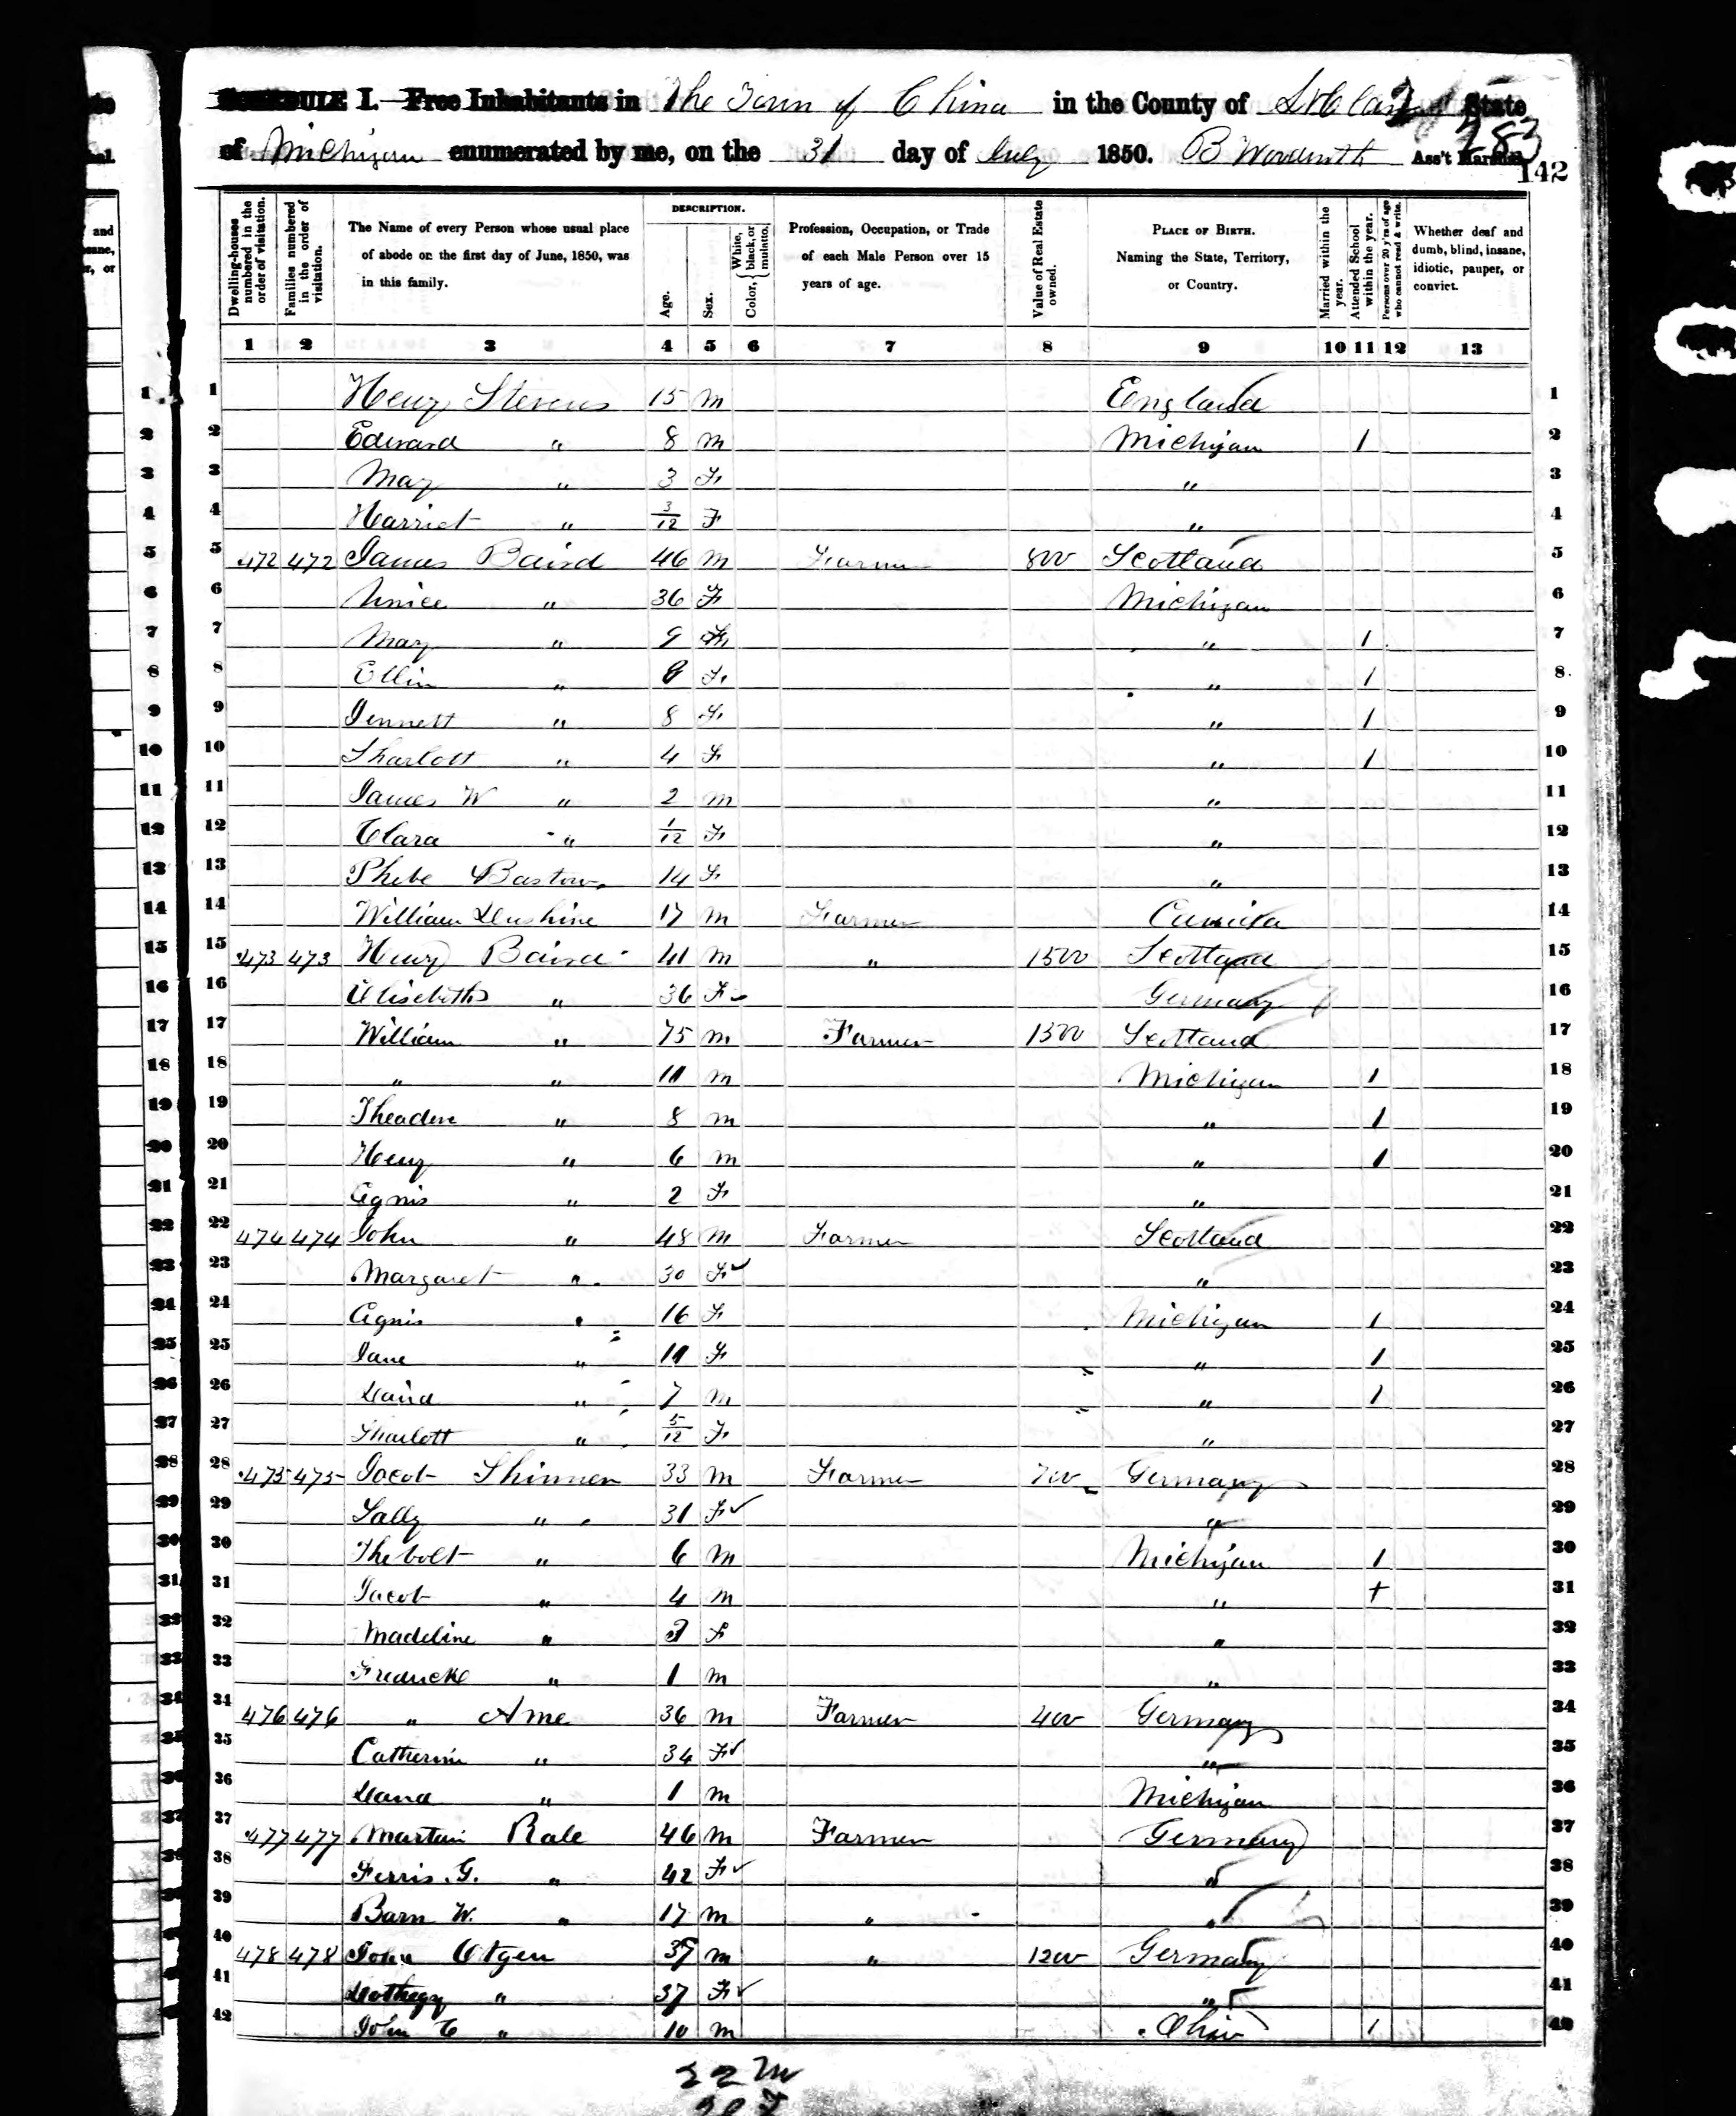 SCHEDULE I.—Free Inhabitants in The Town of China in the County of St Clair State
of Michigan enumerated by me, on the 31 day of July 1850. B Ass't Marshal
283
142
Dwelling-houses numbered in the order of visitation.
Families numbered in the order of visitation.
The Name of every Person whose usual place of abode on the first day of June, 1850, was in this family.
DESCRIPTION.
Age.
Sex.
Color, { White, black, or mulatto.
Profession, Occupation, or Trade of each Male Person over 15 years of age.
Value of Real Estate owned.
PLACE OF BIRTH. Naming the State, Territory, or Country.
Married within the year.
Attended School within the year.
Persons over 20 y'rs of age who cannot read & write.
Whether deaf and dumb, blind, insane, idiotic, pauper, or convict.
1 2 3 4 5 6 7 8 9 10 11 12 13
1 Henry Stevens 15 m England 1
2 Edward " 8 m Michigan 1 2
3 Mary " 3 F " 3
4 Harriet " 3/12 F " 4
5 472 472 James Baird 46 m Farmer 800 Scotland 5
6 Unice " 36 F Michigan 6
7 Mary " 9 F " 1 7
8 Ellin " 9 F " 1 8
9 Jennett " 8 F " 1 9
10 Sharlott " 4 F " 1 10
11 James W " 2 m " 11
12 Clara " 1/12 F " 12
13 Phebe Bastow 14 F " 13
14 William 17 m Farmer Canada 14
15 473 473 Henry Baird 41 m " 1500 Scotland 15
16 Elisebeth " 36 F Germany 16
17 William " 75 m Farmer 1500 Scotland 17
18 " " 11 m Michigan 1 18
19 Theadore " 8 m " 1 19
20 Henry " 6 m " 1 20
21 Agnis " 2 F " 21
22 474 474 John " 48 m Farmer Scotland 22
23 Margaret " 30 F " 23
24 Agnis " 16 F Michigan 1 24
25 Jane " 11 F " 1 25
26 David " 7 m " 1 26
27 Sharlott " 5/12 F " 27
28 475 475 Jacob Shinner 33 m Farmer 700 Germany 28
29 Sally " 31 F " 29
30 Thebolt " 6 m Michigan 1 30
31 Jacob " 4 m " + 31
32 Madeline " F " 32
33 Fredricke " 1 m " 33
34 476 476 " Ame 36 m Farmer 400 Germany 34
35 Catherine " 34 F " 35
36 " 1 m Michigan 36
37 477 477 Martin Rale 46 m Farmer Germany 37
38 Ferris. G. " 42 F " 38
39 Barn W. " 17 m " " 39
40 478 478 John Otgen 37 m " 1200 Germany 40
41 " 37 F " 41
42 John C " 10 m Ohio 1 42
22 m
20 F